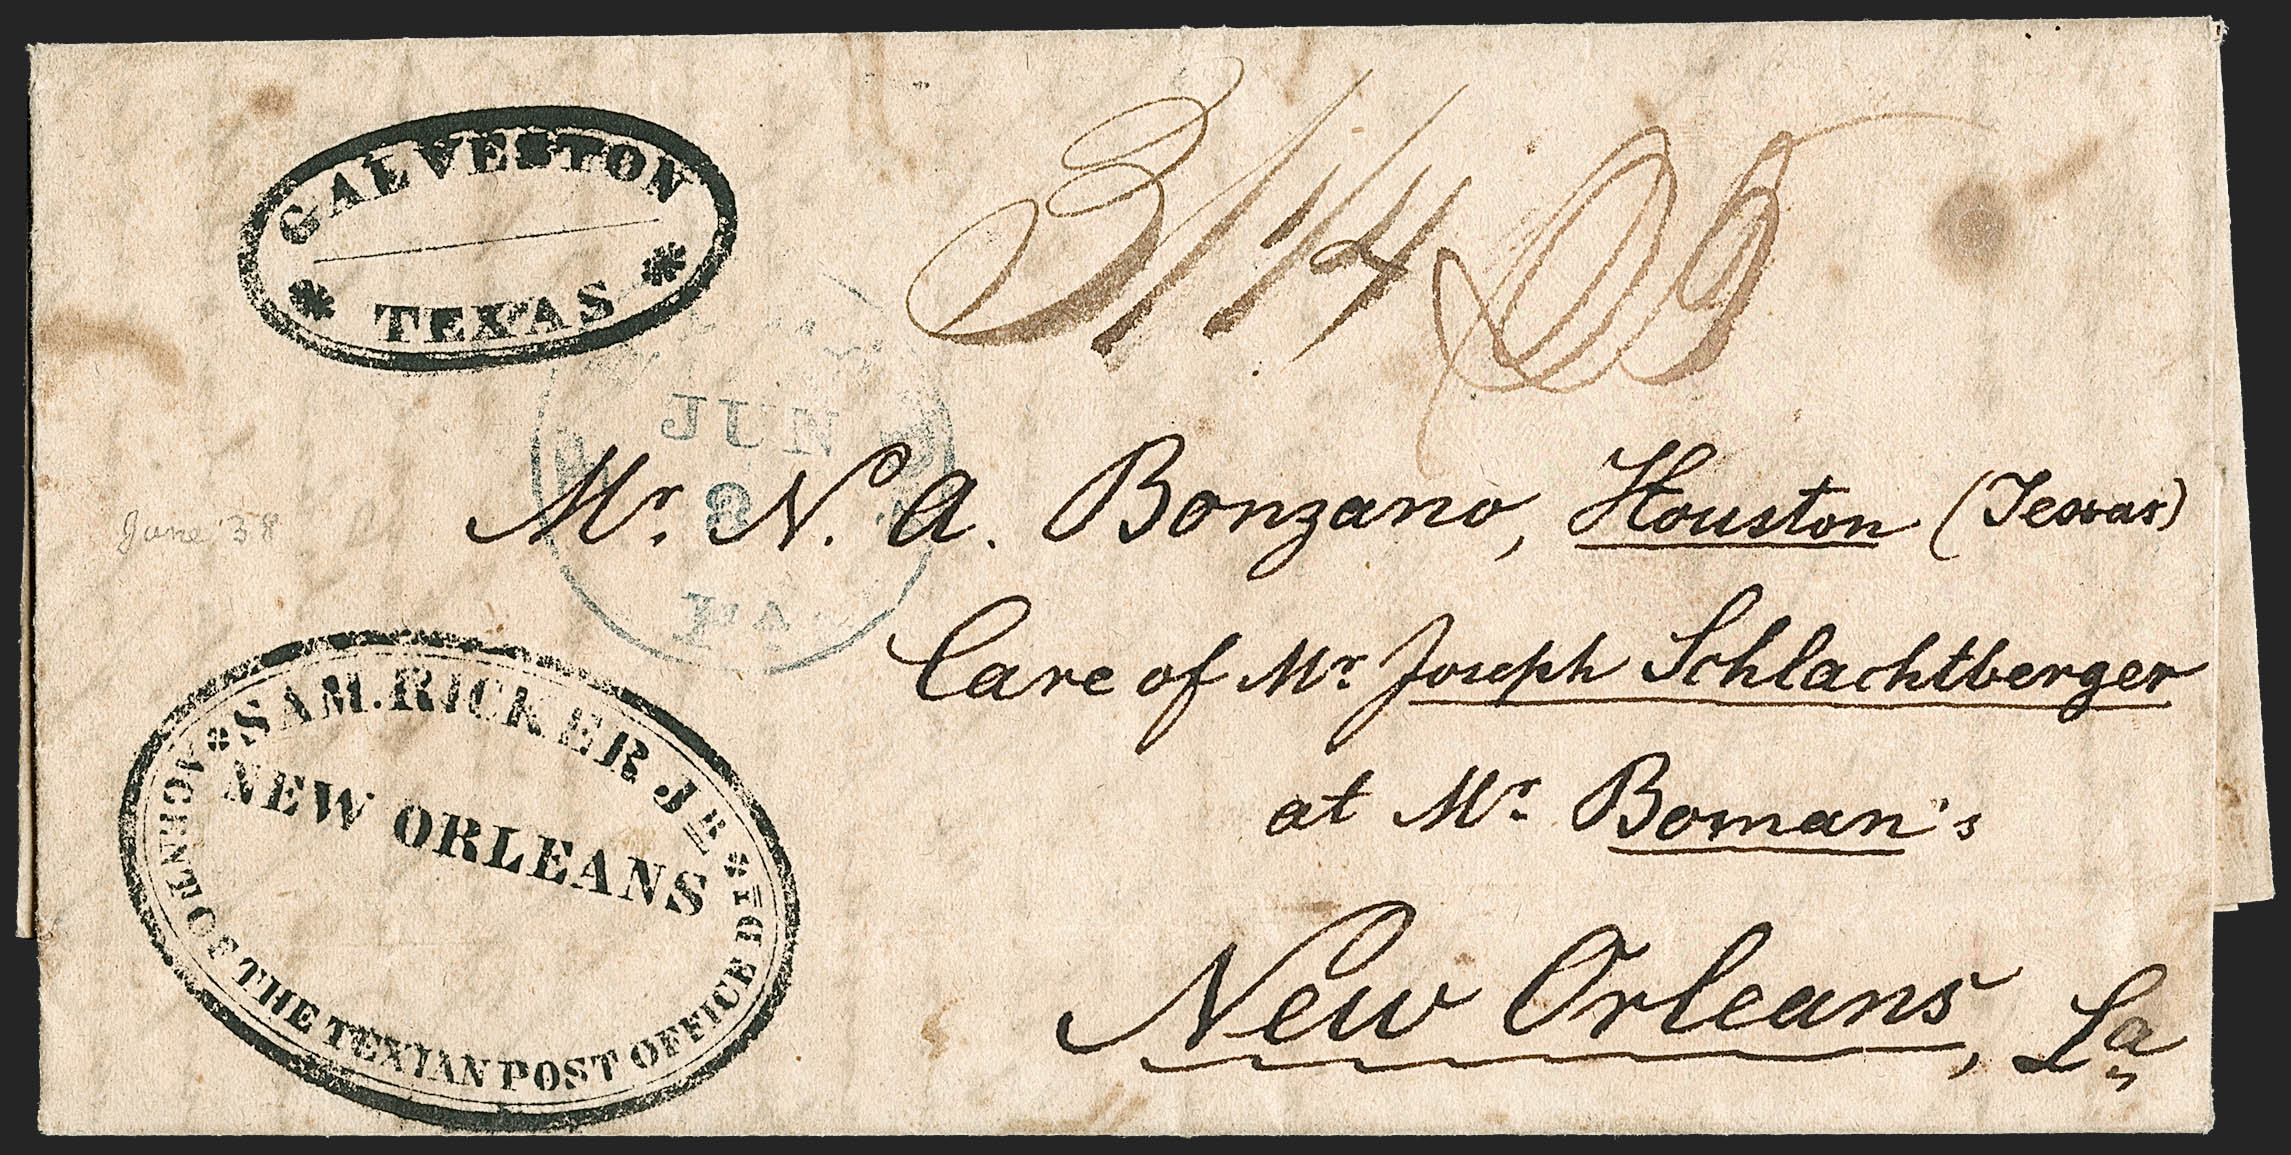 GALVESTON
TEXAS
JUN
8
PA.
June '38
Mr. N. A. Bonzano, Houston (Texas)
Care of Mr. Joseph Schlachtberger
at Mr. Boman's
New Orleans, La
SAM. RICKER JR
NEW ORLEANS
AGENCY OF THE TEXIAN POST OFFICE DT